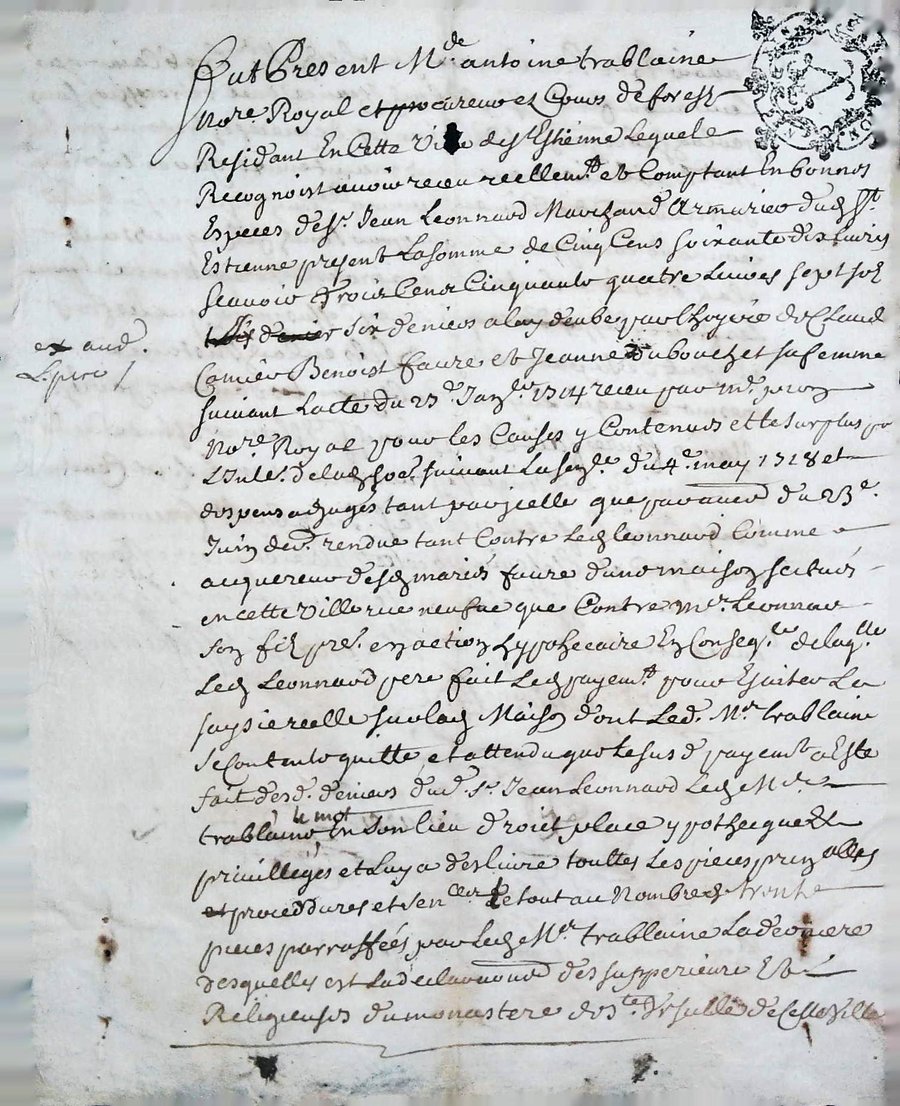 fut Present Me. antoine trablaine
No.re Royal et procureur es Cours de forestz
Residant En Cette Ville de st Estienne Lequel
Recognoist avoir receu reellemt. et Comptant En bonnes
Especes de sr. Jean Leonnard Marchand Armurier dud st
Estienne present La somme de Cinq Cens soixante dix livres
scauoir trois Cens Cinquante quatre Livres sept sols
six deniers a luy deube par de Claud
Benoist faure et Jeanne dubouchet sa femme
suivant Lacte du 23e. Janr. 1714 receu par me.
No.re Royal pour les Causes y Contenues et le surplus po
suivant La du 4e. may 1718 et
despens adjugés tant par jcelle que par du 23e.
Juin der. rendue tant Contre Led Leonnard Comme
acquereur desd mariés faure d'une maison scituée
en cette Ville rue neufue que Contre mr. Leonnard
son filz pres. en action hypothecaire En Conseqce. de laqlle
Led Leonnard pere fait Led payemt. pour Euiter La
saysie reelle sur lad Maison dont Led. Me. trablaine
se Contente quitte, et attendu que Le susd payemt. a Este
fait desd. deniers dud. sr. Jean Leonnard Led Me.
trablaine le met En son lieu droict place ypothecque et
priuilleges et Luy a deslivré touttes Les pieces prinalles
et proceddures et sen Le tout au Nombre de trente
pieces parraffées par Led Me. trablaine La derniere
desquelles est La des supperieure Et
Religieuses du monastere de ste. Vrsulle de Cette Ville